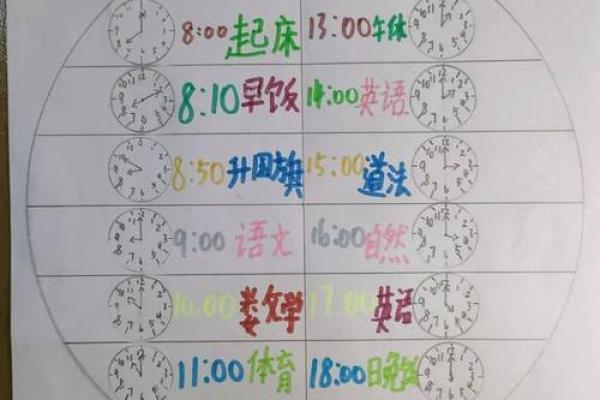 8:00 起床 13:00 午休
8:10 早饭 14:00 英语
8:50 升国旗 15:00 道法
9:00 语文 16:00 自然
10:00 娄文学 17:00 英语
11:00 体育 18:00 日晚饭